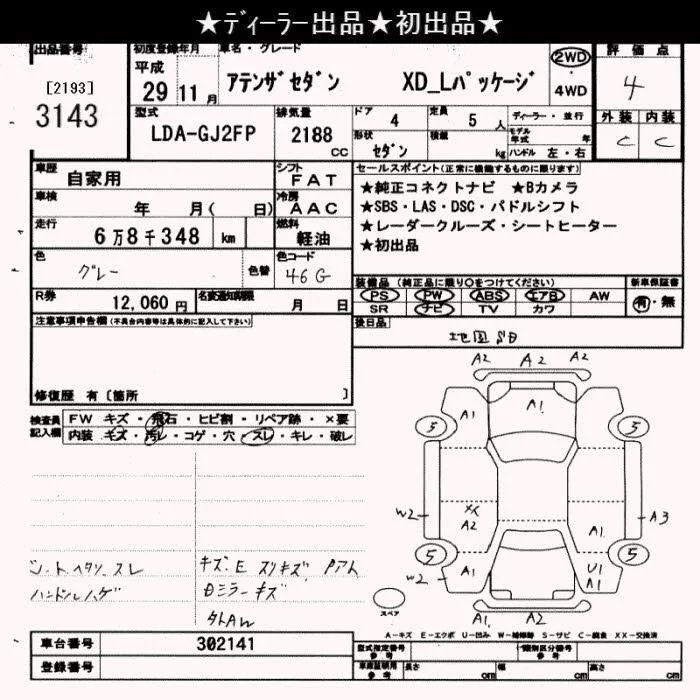 ★ﾃﾞｨｰﾗｰ出品★初出品★
出品番号
[2193]
3143
初度登録年月
平成
29 11 月
車名・グレード
ｱﾃﾝｻﾞｾﾀﾞﾝ XD_Lﾊﾟｯｹｰｼﾞ
2WD
・
4WD
評 価 点
4
外 装 内 装
C C
型式
LDA-GJ2FP
排気量
2188
CC
ドア 4
定員 5 人
ディーラー・並行
形状 ｾﾀﾞﾝ
積載 kg
モデル年式 年
ハンドル 左・右
車歴
自家用
シフト
FAT
車検
年 月( 日)
冷房
AAC
走行
6万8千348 km
燃料
軽油
色
グレー
色替
色コード
46G
R券
12,060 円
名変通知期限
月 日
セールスポイント(正常に機能するものに限ります)
★純正コネクトナビ ★Bカメラ
★SBS・LAS・DSC・パドルシフト
★レーダークルーズ・シートヒーター
★初出品
装備品 (純正品に限り○をつけてください)
新車保証書
PS PW ABS エアB AW
SR ナビ TV カワ
有・無
後日品
地図SD
注意事項申告欄(不具合内容等は具体的に記入して下さい)
修復歴 有〔箇所 〕
検査員
記入欄
FW キズ・飛石・ヒビ割・リペア跡・×要
内装 キズ・汚レ・コゲ・穴・スレ・キレ・破レ
シートヘタリ、スレ
ハンドルハゲ
キズ、E スリキズ
ミラーキズ
A2 A2 A2
A1 A1
5 5
W2 A2 A3
A1
5 5
W2 A1 U1
A1
A1 A2
スペア
A-キズ E-エクボ U-凹み W-補修跡 S-サビ C-腐食 XX-交換済
車台番号
302141
登録番号
型式指定番号
参考
類別区分番号
参考
車庫証明用
参考
長さ cm
幅 cm
高さ cm